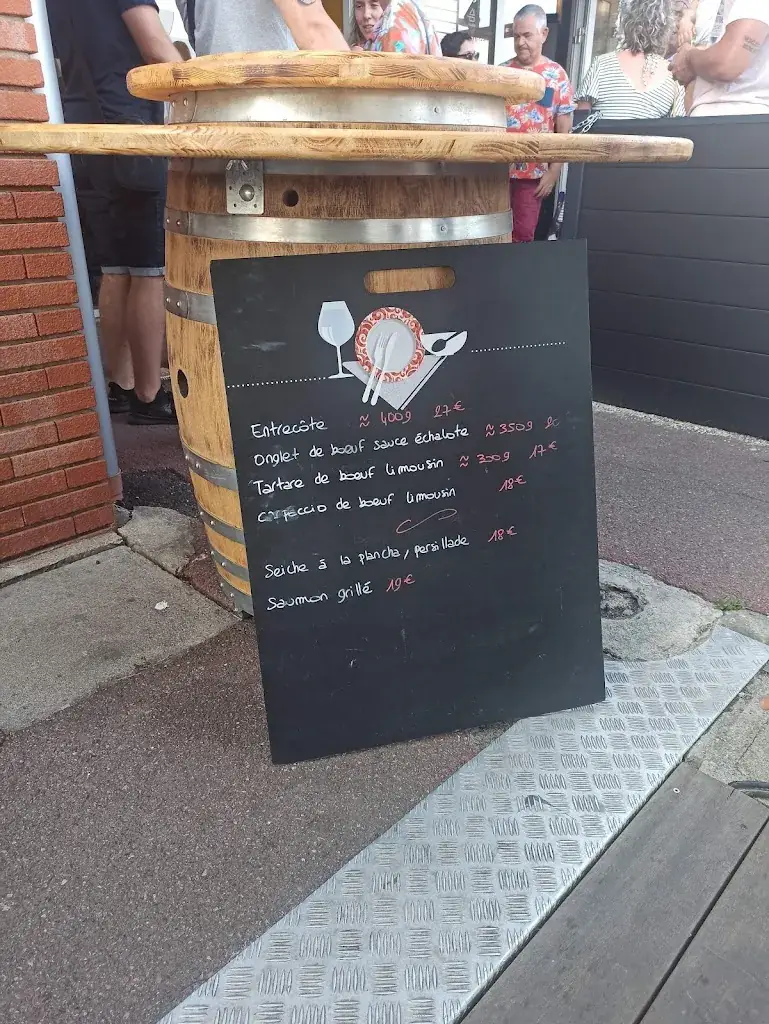 Entrecôte ≈ 400g 27€
Onglet de bœuf sauce échalote ≈ 350g
Tartare de bœuf limousin ≈ 300g 17€
carpaccio de bœuf limousin 18€
Seiche à la plancha, persillade 18€
Saumon grillé 19€